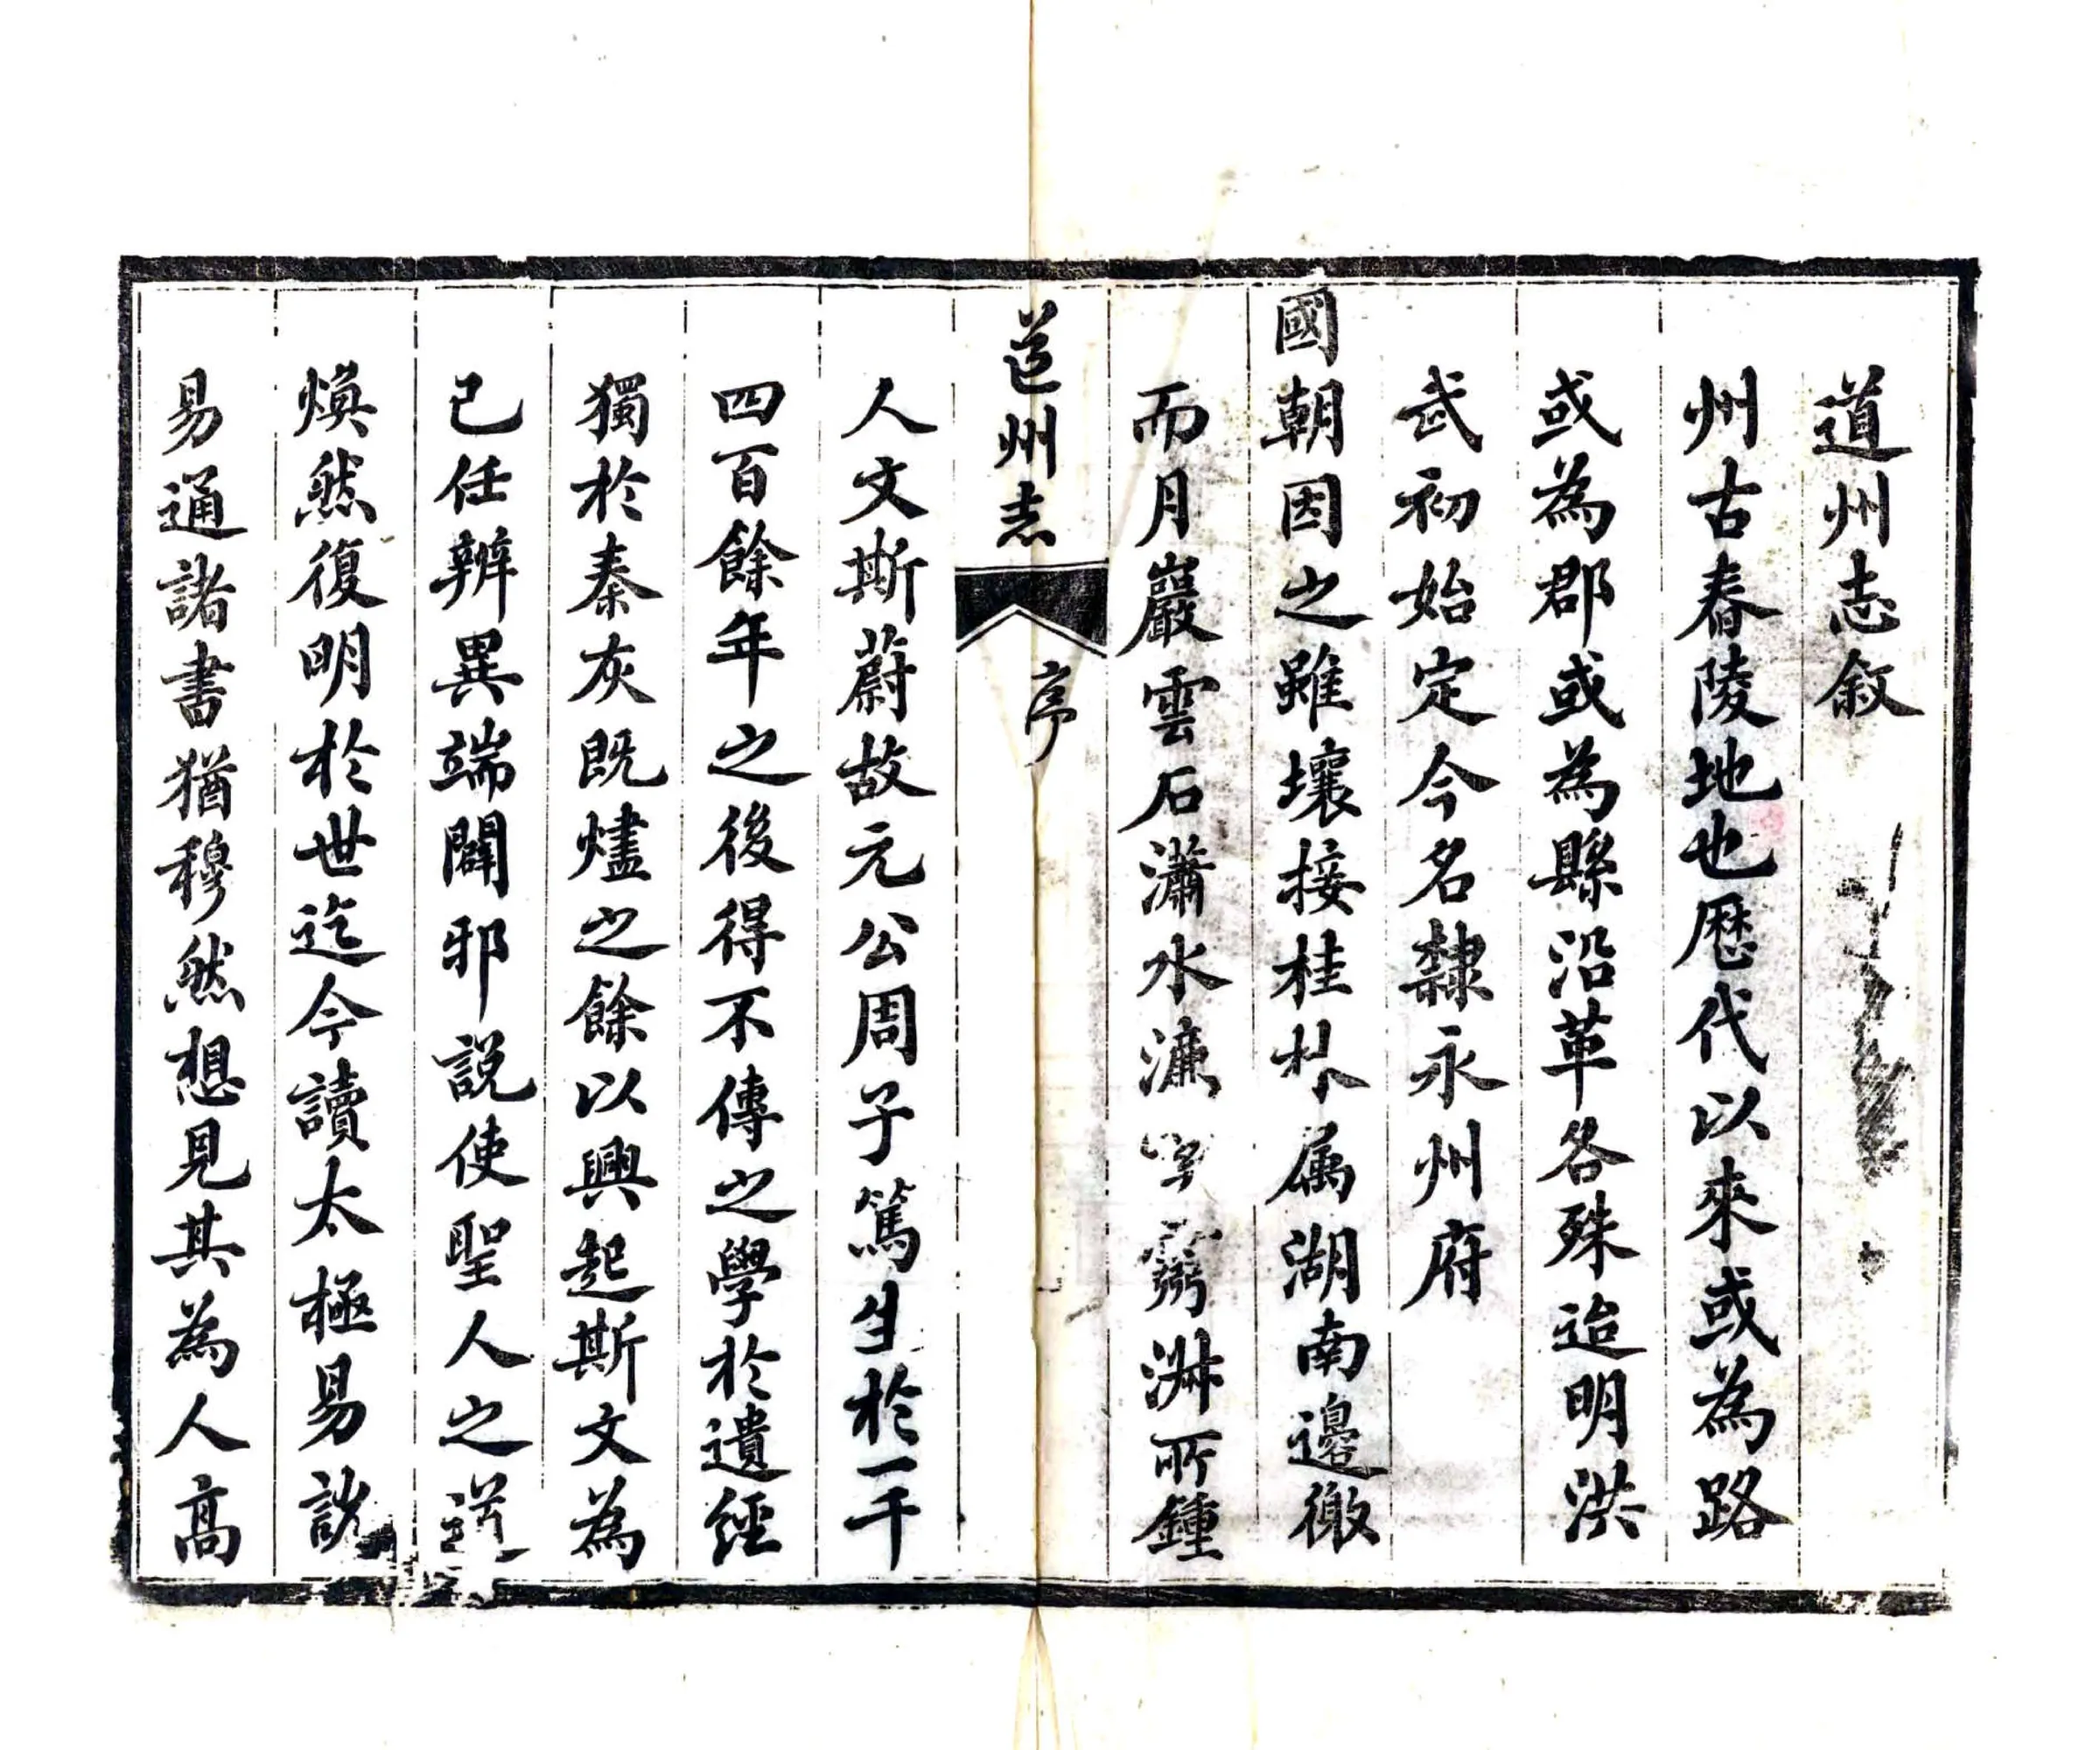 道州志敘
州古舂陵地也歷代以來或為路
或為郡或為縣沿革各殊迨明洪
武初始定今名隸永州府
國朝因之雖壤接桂林屬湖南邊徼
而月巖雲石瀟水濂淑所鍾
道州志
序
人文斯蔚故元公周子篤生於一千
四百餘年之後得不傳之學於遺經
獨於秦灰既燼之餘以興起斯文為
己任辨異端闢邪說使聖人之道
煥然復明於世迄今讀太極易說
易通諸書猶穆然想見其為人高